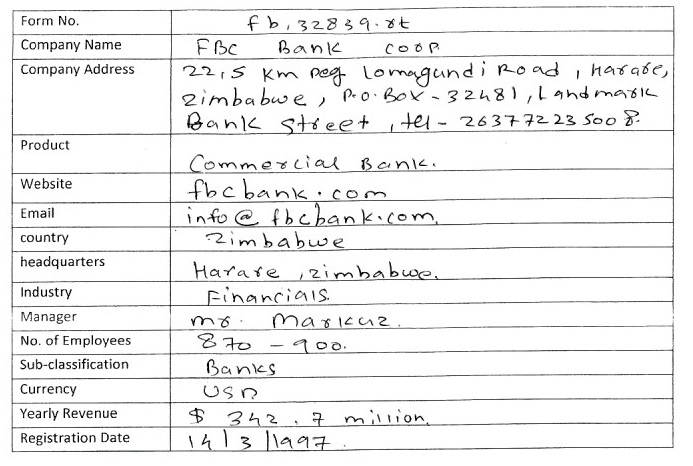 Form No. fb,32839.rt
Company Name FBC Bank coop
Company Address 22,5 km peg lomagundi Road, Harare,
zimbabwe, P.O.Box-32481, Landmark
Bank street, tel-26377223500 8.
Product Commercial Bank.
Website fbcbank.com
Email info@fbcbank.com.
country zimbabwe
headquarters Harare, zimbabwe.
Industry Financials.
Manager mr. Markuz.
No. of Employees 870-900.
Sub-classification Banks
Currency USD
Yearly Revenue $ 342.7 million.
Registration Date 14/3/1997.